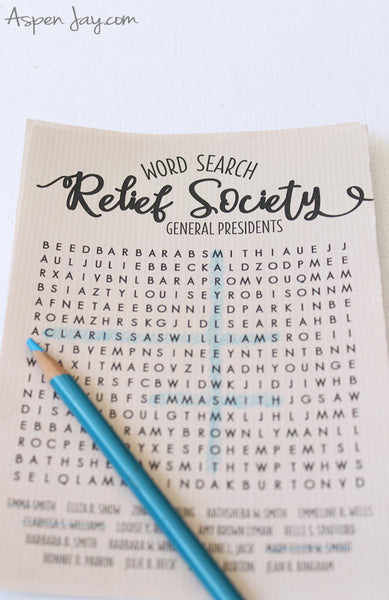 Aspen Jay.com
WORD SEARCH
Relief Society
GENERAL PRESIDENTS
BEEDBARBARABSMITHIAUEJJ
AULJULIEBBECKALDZODPMEE
RXAIVBNLBAPROMVOUQMAM
BSIAZTYLOUISEYROBISONNM
AFNETAEEBONNIEDPARKINBE
ROEMZHRSKGJLDLSEAREAHBL
ACLARISSASWILLIAMSROEII
TJBVEMPNSINEEYNTENTBNN
AXITMAEOVZINADHYOUNGE
ERSFCBWIDWKJIDJIWHB
UBFSEMMASMITHIGSAW
BOULGTHMXLJHLJMME
RAMYBROWNLYMANLL
YXESFOHEMPEMTSL
WITHTWPTWHWS
INDAKBURTONVD
EMMA SMITH ELIZA R. SNOW YOUNG BATHSHEBA W. SMITH EMMELINE B. WELLS
CLARISSA S. WILLIAMS LOUISE Y. AMY BROWN LYMAN BELLE S. SPAFFORD
BARBARA B. SMITH BARBARA W. L. JACK MARY ELLEN W. SMOOT
BONNIE D. PARKIN JULIE B. BECK BURTON JEAN B. BINGHAM